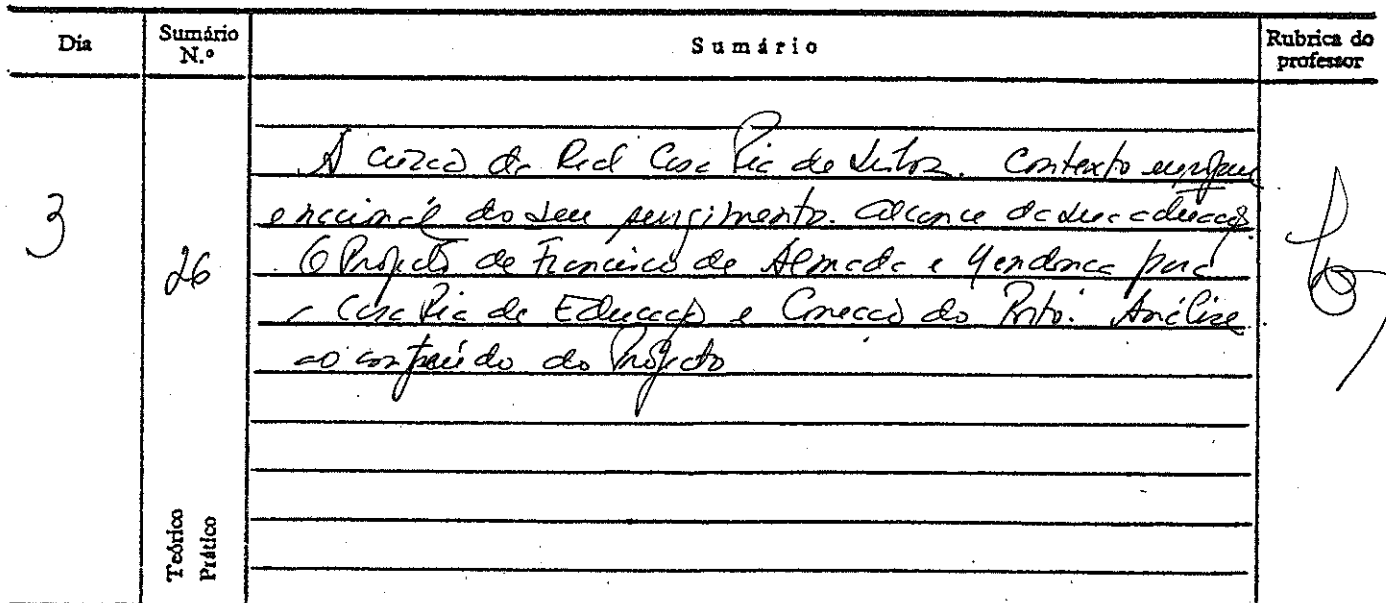 Dia
Sumário N.º
Sumário
Rubrica do professor
3
26
A criação da Real Casa Pia de Lisboa. Contexto europeu
e nacional do seu surgimento. Alcance da sua educação
O Projecto de Francisco de Almada e Mendonça para
a Casa Pia de Educação e Correcção do Porto. Análise
ao conteúdo do Projecto
Teórico
Prático